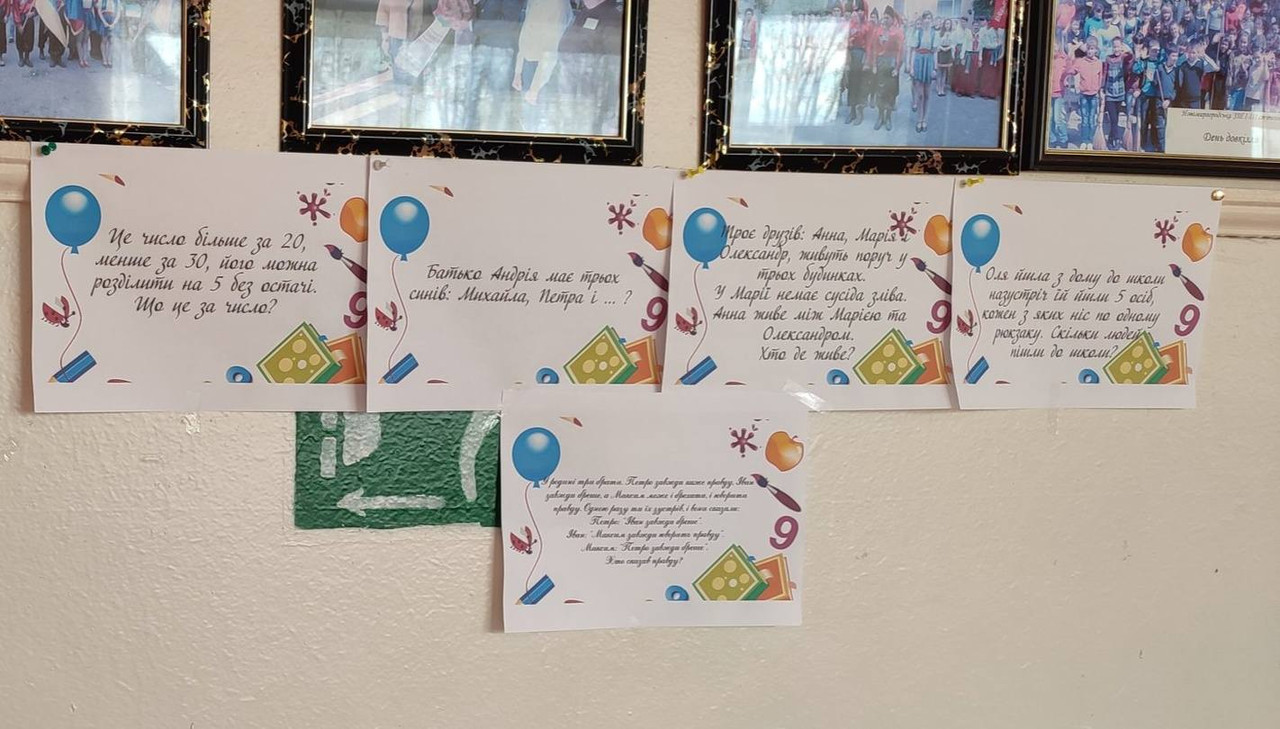 День довкілля
Це число більше за 20,
менше за 30, його можна
розділити на 5 без остачі.
Що це за число?
9
Батько Андрія має трьох
синів: Михайла, Петра і ... ?
9
Троє друзів: Анна, Марія і
Олександр, живуть поруч у
трьох будинках.
У Марії немає сусіда зліва.
Анна живе між Марією та
Олександром.
Хто де живе?
9
Оля йшла з дому до школи
назустріч їй йшли 5 осіб,
кожен з яких ніс по одному
рюкзаку. Скільки людей
пішли до школи?
9
У родині три брати. Петро завжди каже правду, Іван
завжди бреше, а Максим може і брехати, і говорити
правду. Одного разу ти їх зустрів, і вони сказали:
Петро: "Іван завжди бреше".
Іван: "Максим завжди говорить правду".
Максим: "Петро завжди бреше".
Хто сказав правду?
9